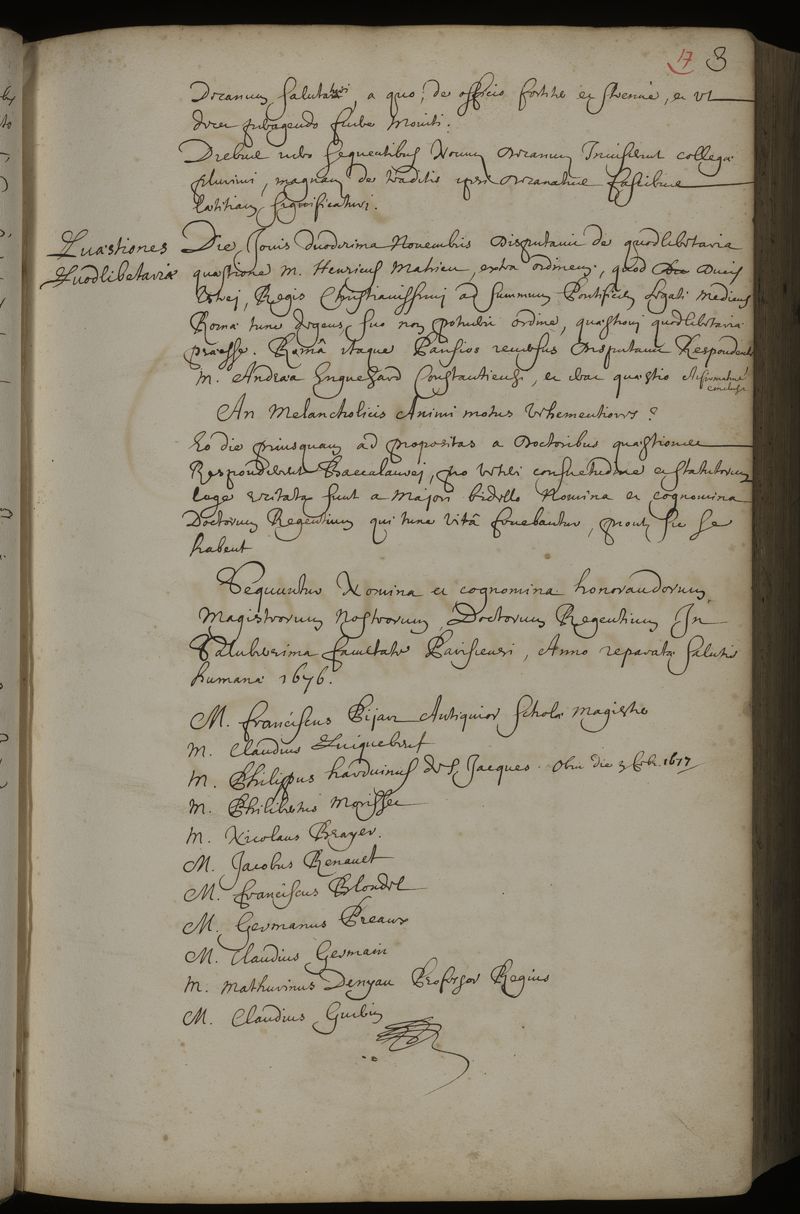 17 8
Decanum salutaturi, a quo, de officio fortiter et strenue, et ut
decet peragendo fuere moniti.
Diebus vero sequentibus Novum Decanum Inviserunt collegæ
plurimi, magnam de traditis ipsi Decanatus fascibus
lætitiam significaturi.
Quæstiones
Quodlibetariæ
Die Jovis duodecima Novembris Disputavit de quodlibetaria
quæstione M. Henricus Mahieu, extra ordinem, quod Ducis
Regis Christianissimi ad summum Pontificem Legati medicus
Romæ tunc degens, suo non potuerit ordine, quæstioni quodlibetariæ
præesse. Româ itaque Parisios reversus Disputavit Respondente
M. Andrea Enguehard Constantiensi, et erat quæstio Affirmativè
conclusa
An Melancholicis Animi motus vehementiores?
Eo die priusquam ad propositas a Doctoribus quæstiones
Responderent Baccalaurei, pro veteri consuetudine et statutorum
lege recitata sunt a Majori bidello Nomina et cognomina
Doctorum Regentium qui tunc vitâ fruebantur, prout sic se
habent
Sequuntur Nomina et cognomina honorandorum
Magistrorum Nostrorum, Doctorum Regentium In
Saluberrima facultate Parisiensi, Anno reparatæ salutis
humanæ 1676.
M. Franciscus Pijart Antiquior Scholæ Magister
M. Claudius Quiquebeuf
M. Philippus harduinus de St. Jacques. Obiit die 1677
M. Philibertus Morisset
M. Nicolaus Brayer.
M. Jacobus Renauet
M. Franciscus Blondel
M. Germanus Preaux
M. Claudius Germain
M. Mathurinus Denyau Professor Regius
M. Claudius Guérin